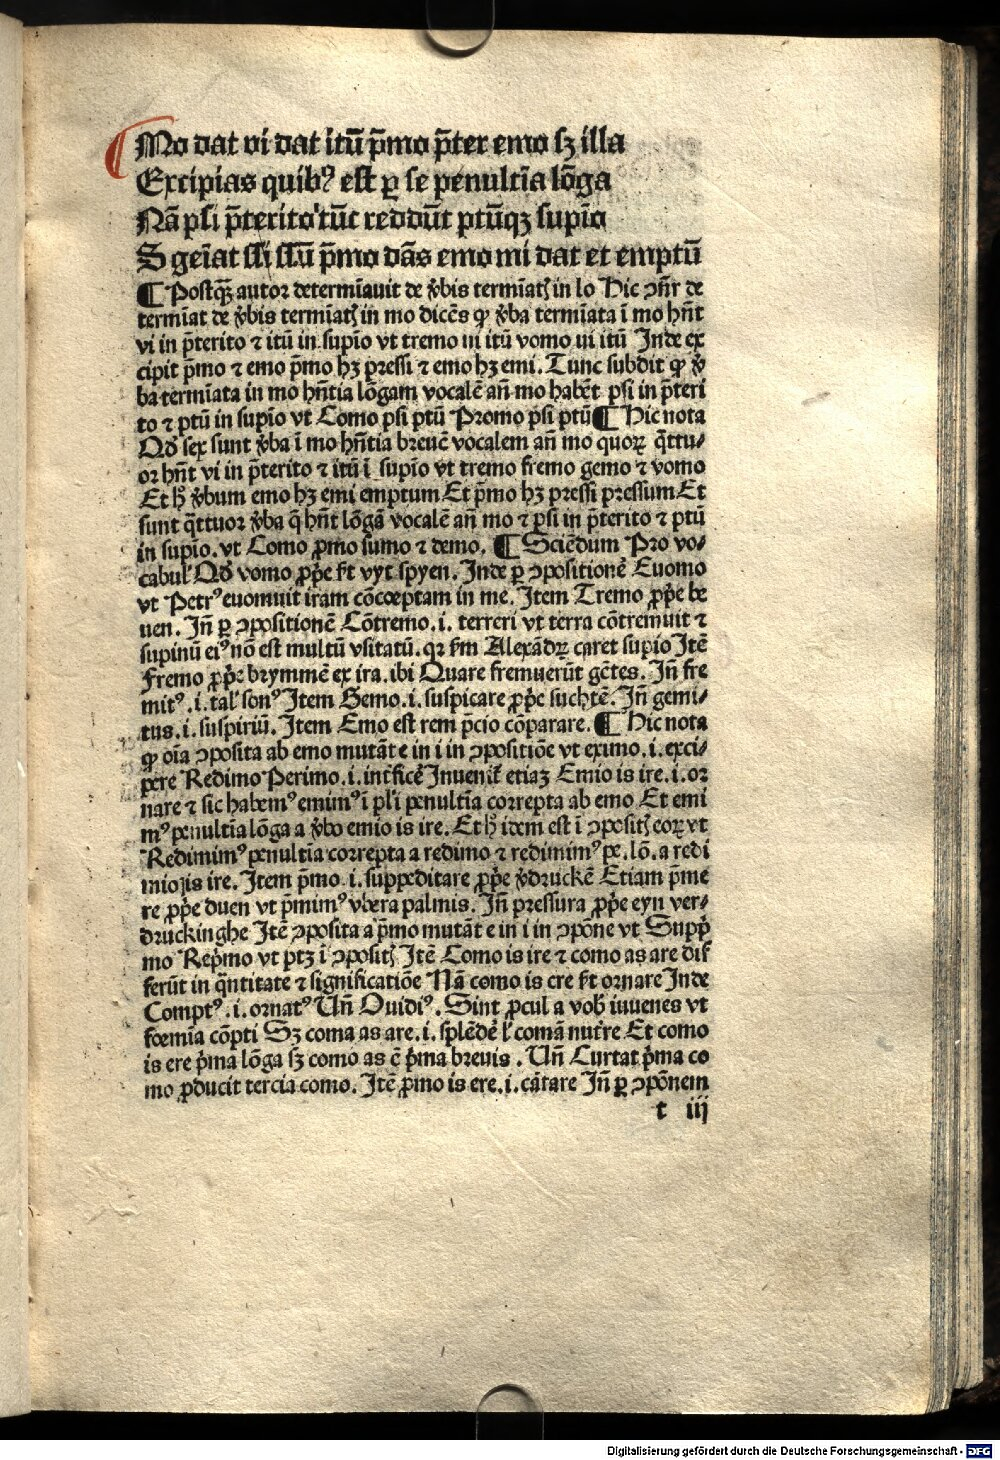 Mo dat vi dat itū p̄mo p̄ter emo sꝫ illa
Excipias quibꝰ est ꝑ se penultīa lōga
Nā psi p̄terito tūc reddūt ptūqꝫ supīo
S geīat ssi ssū p̄mo dās emo mi dat et emptū
¶ Postqꝫ autor determīauit de v̓bis termīatꝭ in lo Hic ↄn̄r de
termīat de v̓bis termīatꝭ in mo dicēs ꝙ v̓ba termīata ī mo hn̄t
vi in p̄terito ⁊ itū in supīo vt tremo ui itū vomo ui itū Inde ex
cipit p̄mo ⁊ emo p̄mo hꝫ pressi ⁊ emo hꝫ emi. Tunc subdit ꝙ v̓
ba termīata in mo hn̄tia lōgam vocalē an̄ mo habēt psi in p̄teri
to ⁊ ptū in supīo vt Como psi ptū Promo psi ptū ¶ Hic nota
Qd̓ sex sunt v̓ba ī mo hn̄tia breuē vocalem an̄ mo quoꝝ q̄ttu-
or hn̄t vi in p̄terito ⁊ itū ī supīo vt tremo fremo gemo ⁊ vomo
Et h̓ v̓bum emo hꝫ emi emptum Et p̄mo hꝫ pressi pressum Et
sunt q̄ttuor v̓ba q̄ hn̄t lōgā vocalē an̄ mo ⁊ psi in p̄terito ⁊ ptū
in supīo. vt Como ꝓmo sumo ⁊ demo. ¶ Sciēdum Pro vo-
cabul̓ Qd̓ vomo ꝓp̓e ē vyt spyen. Inde ꝑ ↄpositionē Euomo
vt Petrꝰ euomuit iram cōceptam in me. Item Tremo ꝓp̓e be
uen. In̄ ꝑ ↄpositionē Cōtremo .i. terreri vt terra cōtremuit ⁊
supinū eiꝰ nō est multū vsitatū. qꝛ s̄m Alexādꝝ caret supīo Itē
Fremo ꝓp̓e brymmē ex ira. ibi Quare fremuerūt gētes. In̄ fre
mitꝰ .i. tal̓ sonꝰ Item Gemo .i. suspicare ꝓp̓e suchtē. In̄ gemi-
tus .i. suspiriū. Item Emo est rem p̓cio cōparare. ¶ Hic nota
ꝙ oīa ↄposita ab emo mutāt e in i in ↄpositiōe vt eximo .i. exci-
pere Redimo Perimo .i. int̓ficē Inuenit̓ etiaꝫ Emio is ire .i. or
nare ⁊ sic habemꝰ emimꝰ ī pl̓i penultīa correpta ab emo Et emi
mꝰ penultīa lōga a v̓bo emio is ire. Et h̓ idem est ī ↄpositꝭ eoꝝ vt
Redimimꝰ penultīa correpta a redimo ⁊ redimimꝰ pe. lō. a redi
mio is ire. Item p̄mo .i. suppeditare ꝓp̓e v̓druckē Etiam p̄me
re ꝓp̓e duen vt p̄mimꝰ vbera palmis. In̄ pressura ꝓp̓e eyn ver-
druckinghe Itē ↄposita a p̄mo mutāt e in i in ↄpone vt Supp̓
mo Rep̓mo vt ptꝫ ī ↄpositꝭ Itē Como is ire ⁊ como as are dif
ferūt in q̄ntitate ⁊ significatiōe Nā como is ere ē ornare Inde
Comptꝰ .i. ornatꝰ Un̄ Ouidiꝰ. Sint ꝓcul a vob̓ iuuenes vt
foemīa cōpti Sꝫ coma as are .i. splēdē l̓ comā nut̓re Et como
is ere p̓ma lōga sꝫ como as ē p̓ma breuis . Un̄ Curtat p̓ma co
mo ꝓducit tercia como. Itē ꝓmo is ere .i. cātare In̄ ꝑ ↄpōnem
t iij
Digitalisierung gefördert durch die Deutsche Forschungsgemeinschaft - DFG